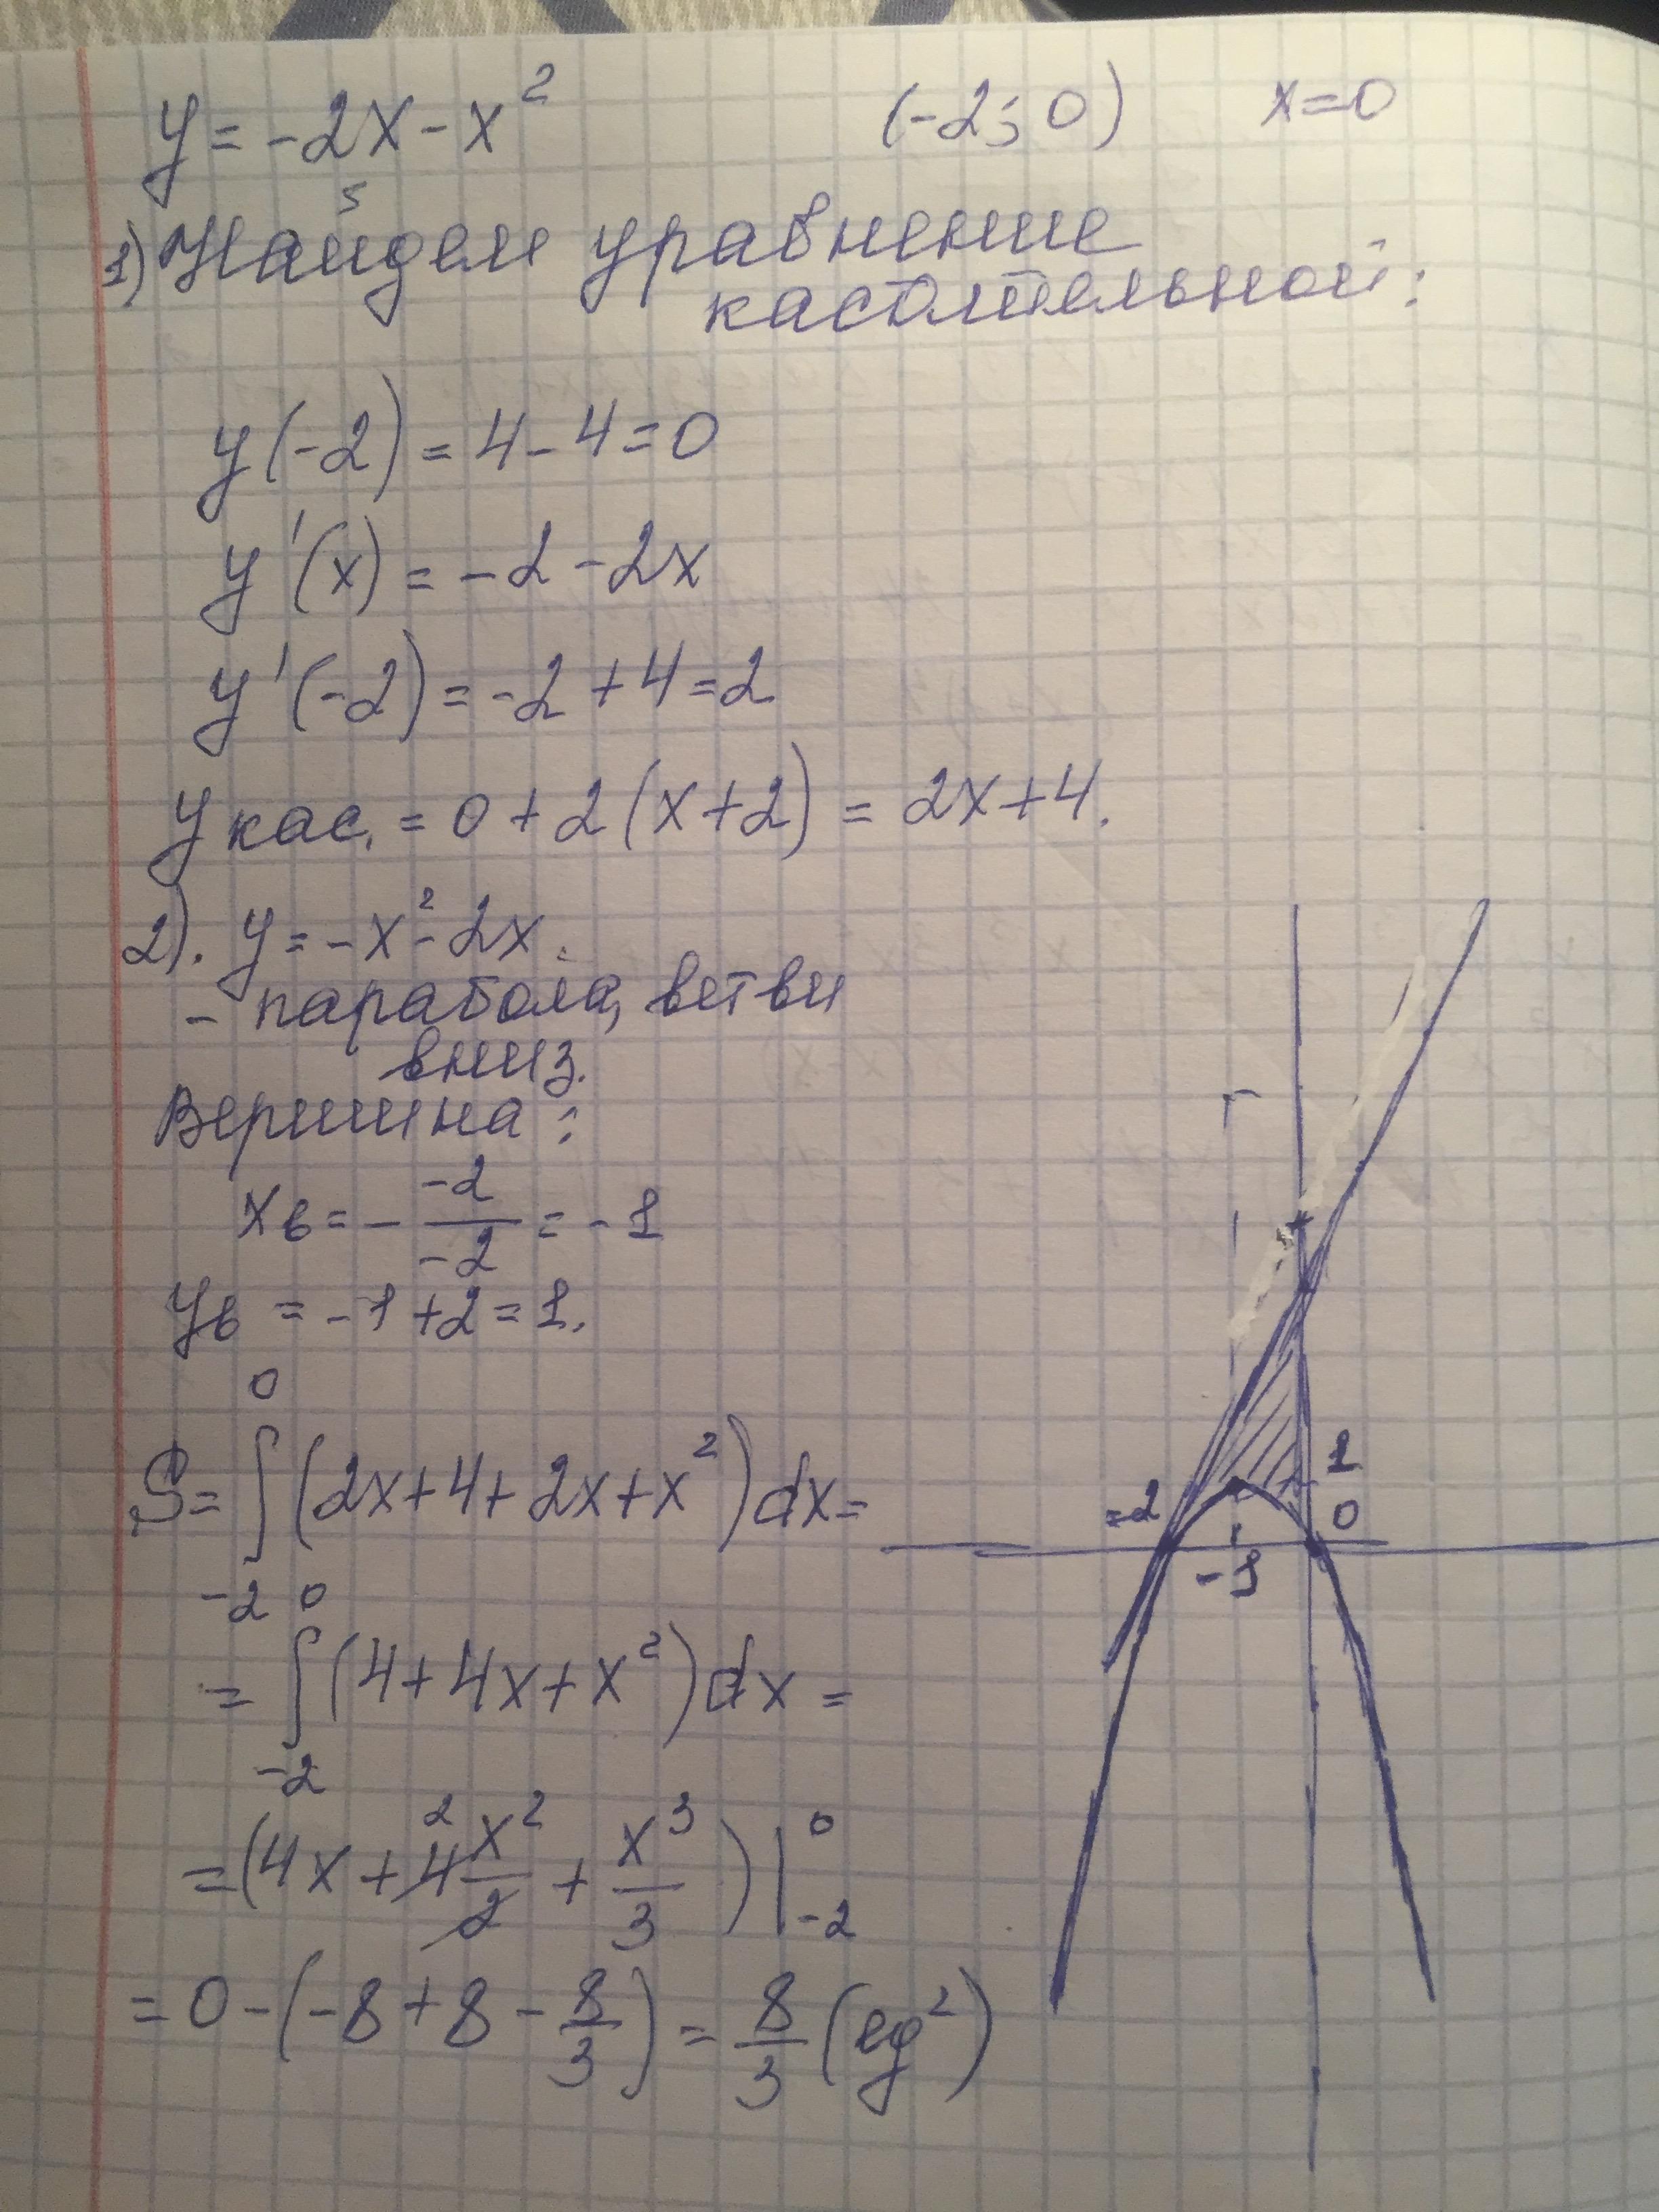 y = -2x - x² (-2; 0) x=0
1) Найдем уравнение
касательной:
y(-2) = 4 - 4 = 0
y'(x) = -2 - 2x
y'(-2) = -2 + 4 = 2
y кас. = 0 + 2(x+2) = 2x+4.
2). y = -x² - 2x.
- парабола, ветви
вниз.
Вершина:
xв = - -2/-2 = -1
yв = -1 + 2 = 1.
S = ∫_{-2}^{0} (2x+4+2x+x²)dx =
= ∫_{-2}^{0} (4+4x+x²)dx =
= (4x + 4 x²/2 + x³/3) |_{-2}^{0}
2
= 0 - (-8 + 8 - 8/3) = 8/3 (ед²)
1
=2
0
-1